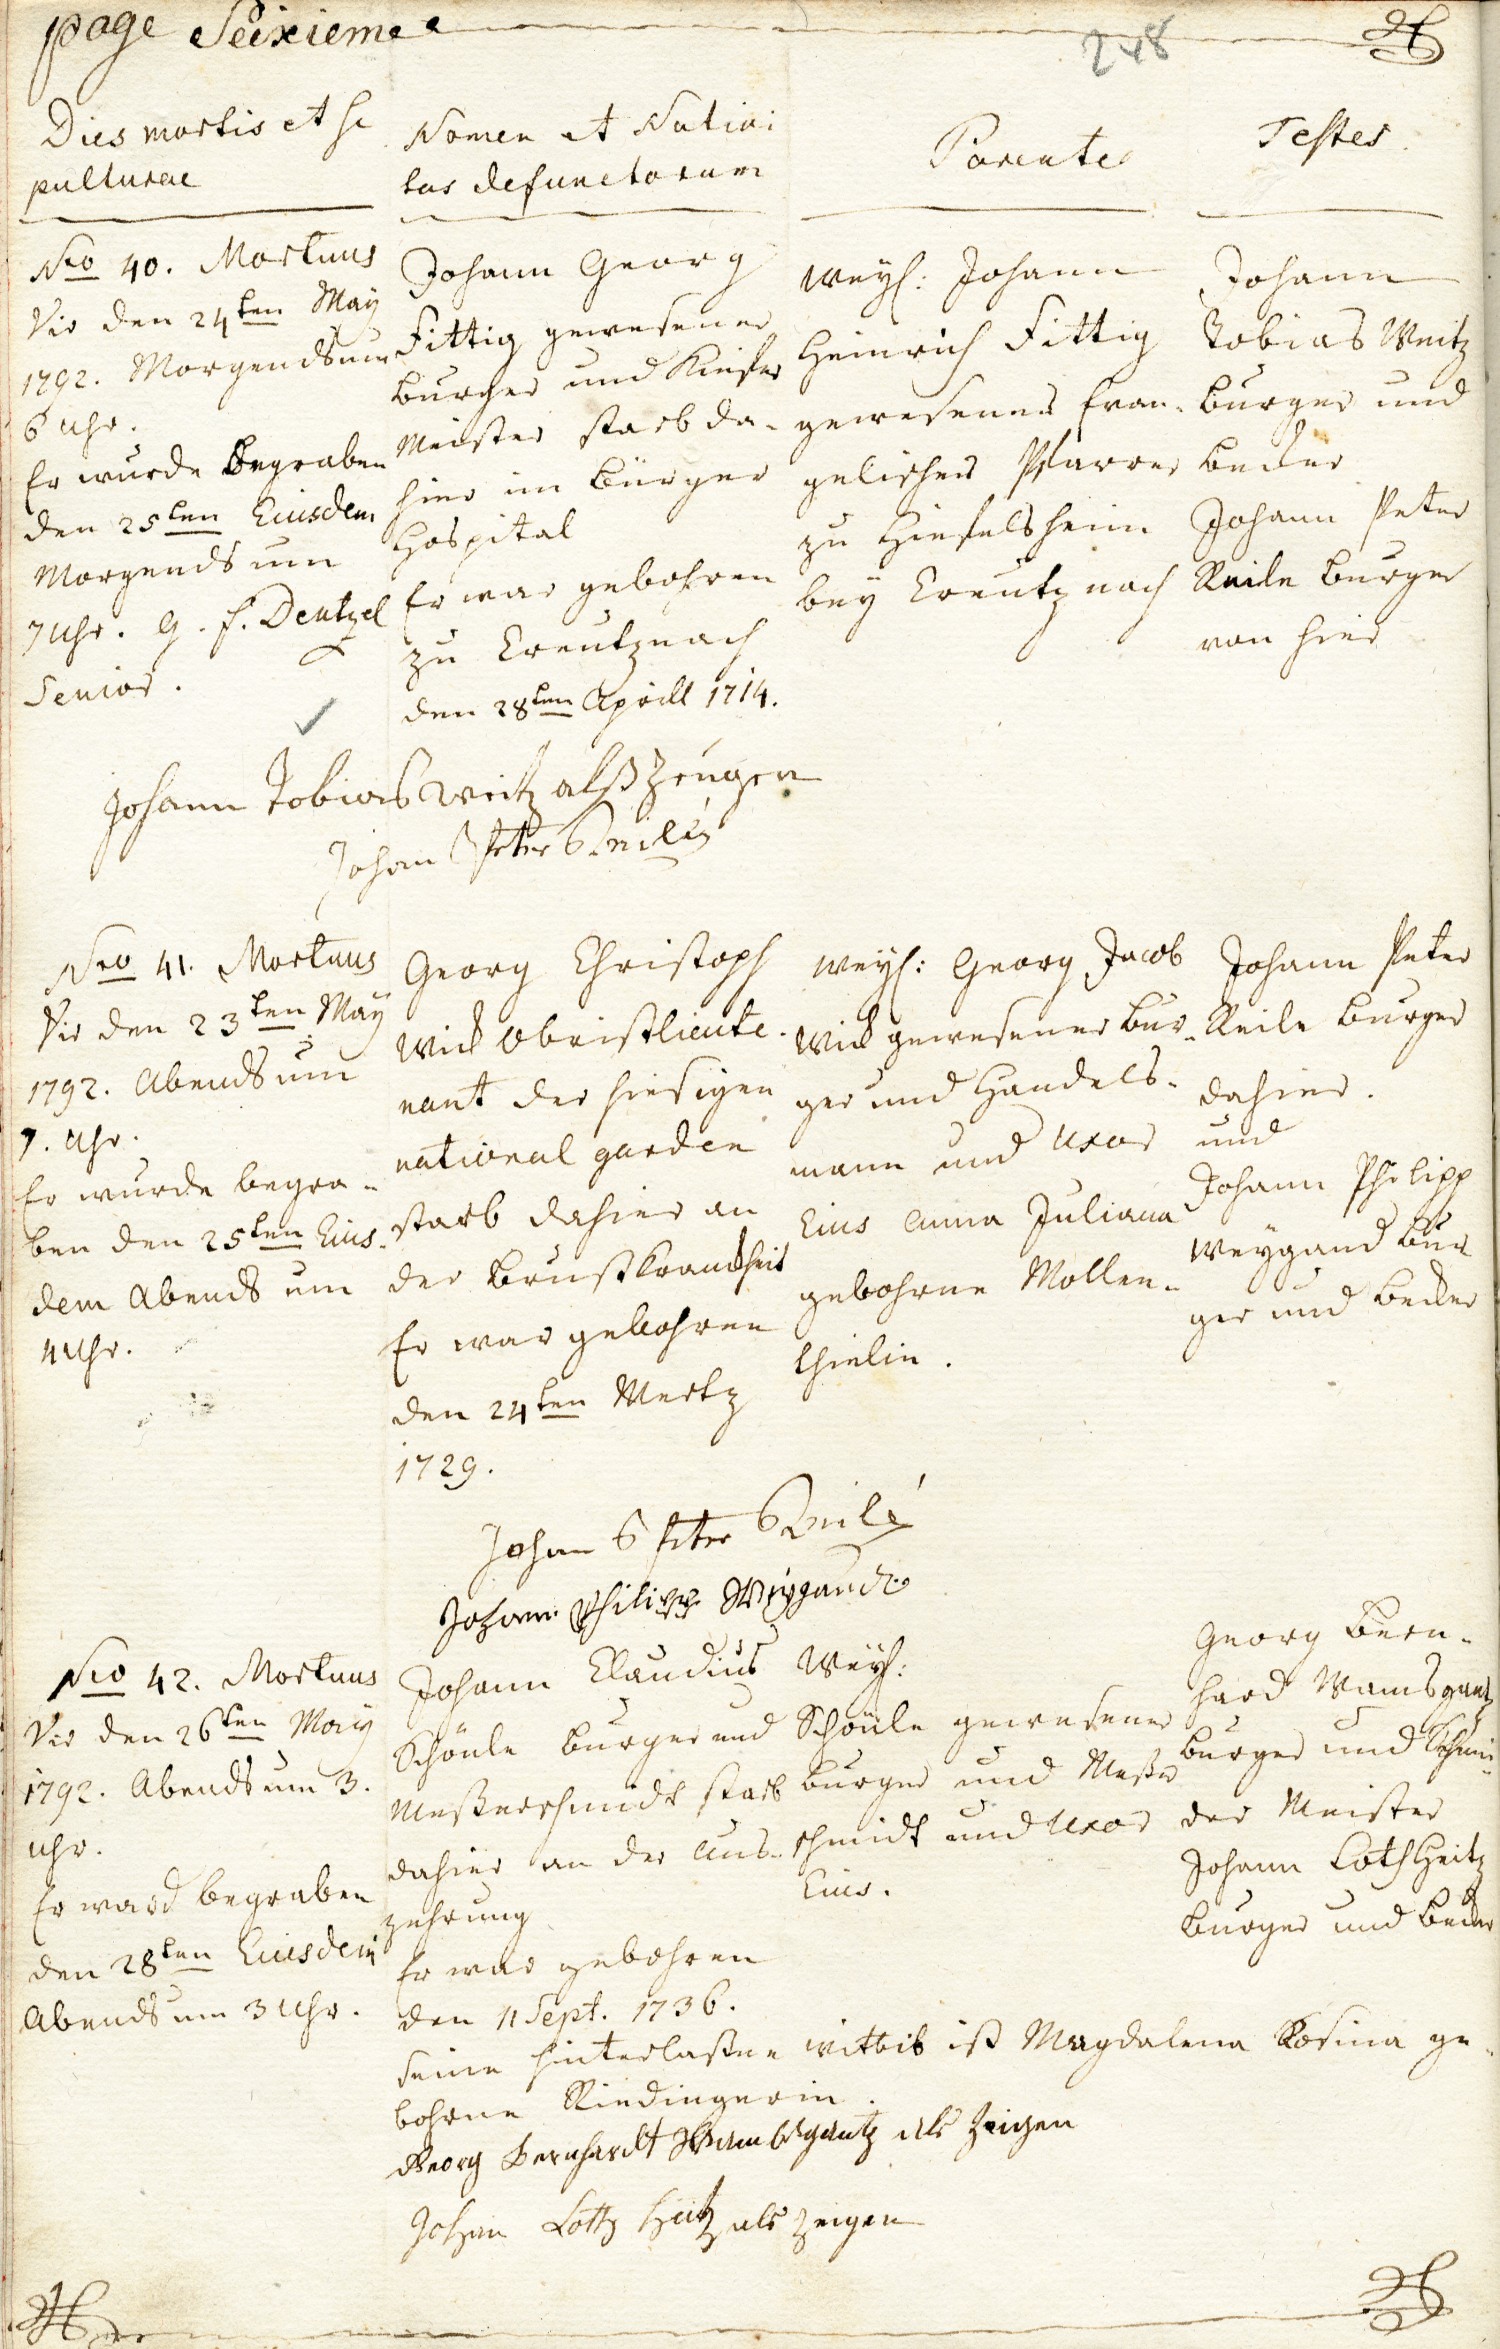 page Seixieme
248
Dies mortis et se
pulturae
Nomen et Nativi
tas defunctorum
Parentes
Testes.
Nro 40. Mortuus
Vir den 24ten May
1792. Morgends um
6 Uhr.
Er wurde Begraben
den 25ten Eiusdem
Morgends um
7 Uhr. G. F. Dentzel
Senior.
Johann Georg
Fittig gewesener
Burger und Kiefer
Meister starb da-
hier im Bürger
Hospital
Er war gebohren
zu Creutznach
den 28ten Aprill 1714.
weyl: Johann
Heinrich Fittig
gewesener Evan-
gelischer Pfarrer
zu Hiefelsheim
bey Creutznach
Johann
Tobias Weitz
Burger und
Becker
Johann Peter
Keile Burger
von hier
Johann Tobias Weitz alß Zeugen
Johan Peter Keile
Nro 41. Mortuus
Vir den 23ten May
1792. Abends um
7. Uhr.
Er wurde begra-
ben den 25ten Eius-
dem Abends um
4 Uhr.
Georg Christoph
Wick Obristlieute-
nant der hiesigen
national garden
starb dahier an
der Brustkranckheit
Er war gebohren
den 24ten Mertz
1729.
weyl: Georg Jacob
Wick gewesener Bur-
ger und Handels-
mann und Uxor
Eius Anna Juliana
gebohrne Mollen-
thielin.
Johann Peter
Keile Burger
dahier.
und
Johann Philipp
Weygand Bur
ger und Becker
Johan Peter Keile
Johann Philipp Weygand
Nro 42. Mortuus
Vir den 26ten May
1792. Abends um 3.
Uhr.
Er ward begraben
den 28ten Eiusdem
Abends um 3 Uhr.
Johann Claudius
Schönle Burger und
Meßerschmidt starb
dahier an der Aus-
zehrung
Er war gebohren
den 11 Sept. 1736.
Weyl:
Schönle gewesener
Burger und Meßer
schmidt und Uxor
Eius.
Georg Bern-
hard Wamsgantz
Burger und Schnei-
der Meister
Johann Loth Heitz
Burger und Becker
seine hinterlaßene wittib ist Magdalena Rosina ge-
bohrne Riedingerin.
Georg Bernhardt Wambsgantz als Zeigen
Johan Lotz Heitz als Zeigen